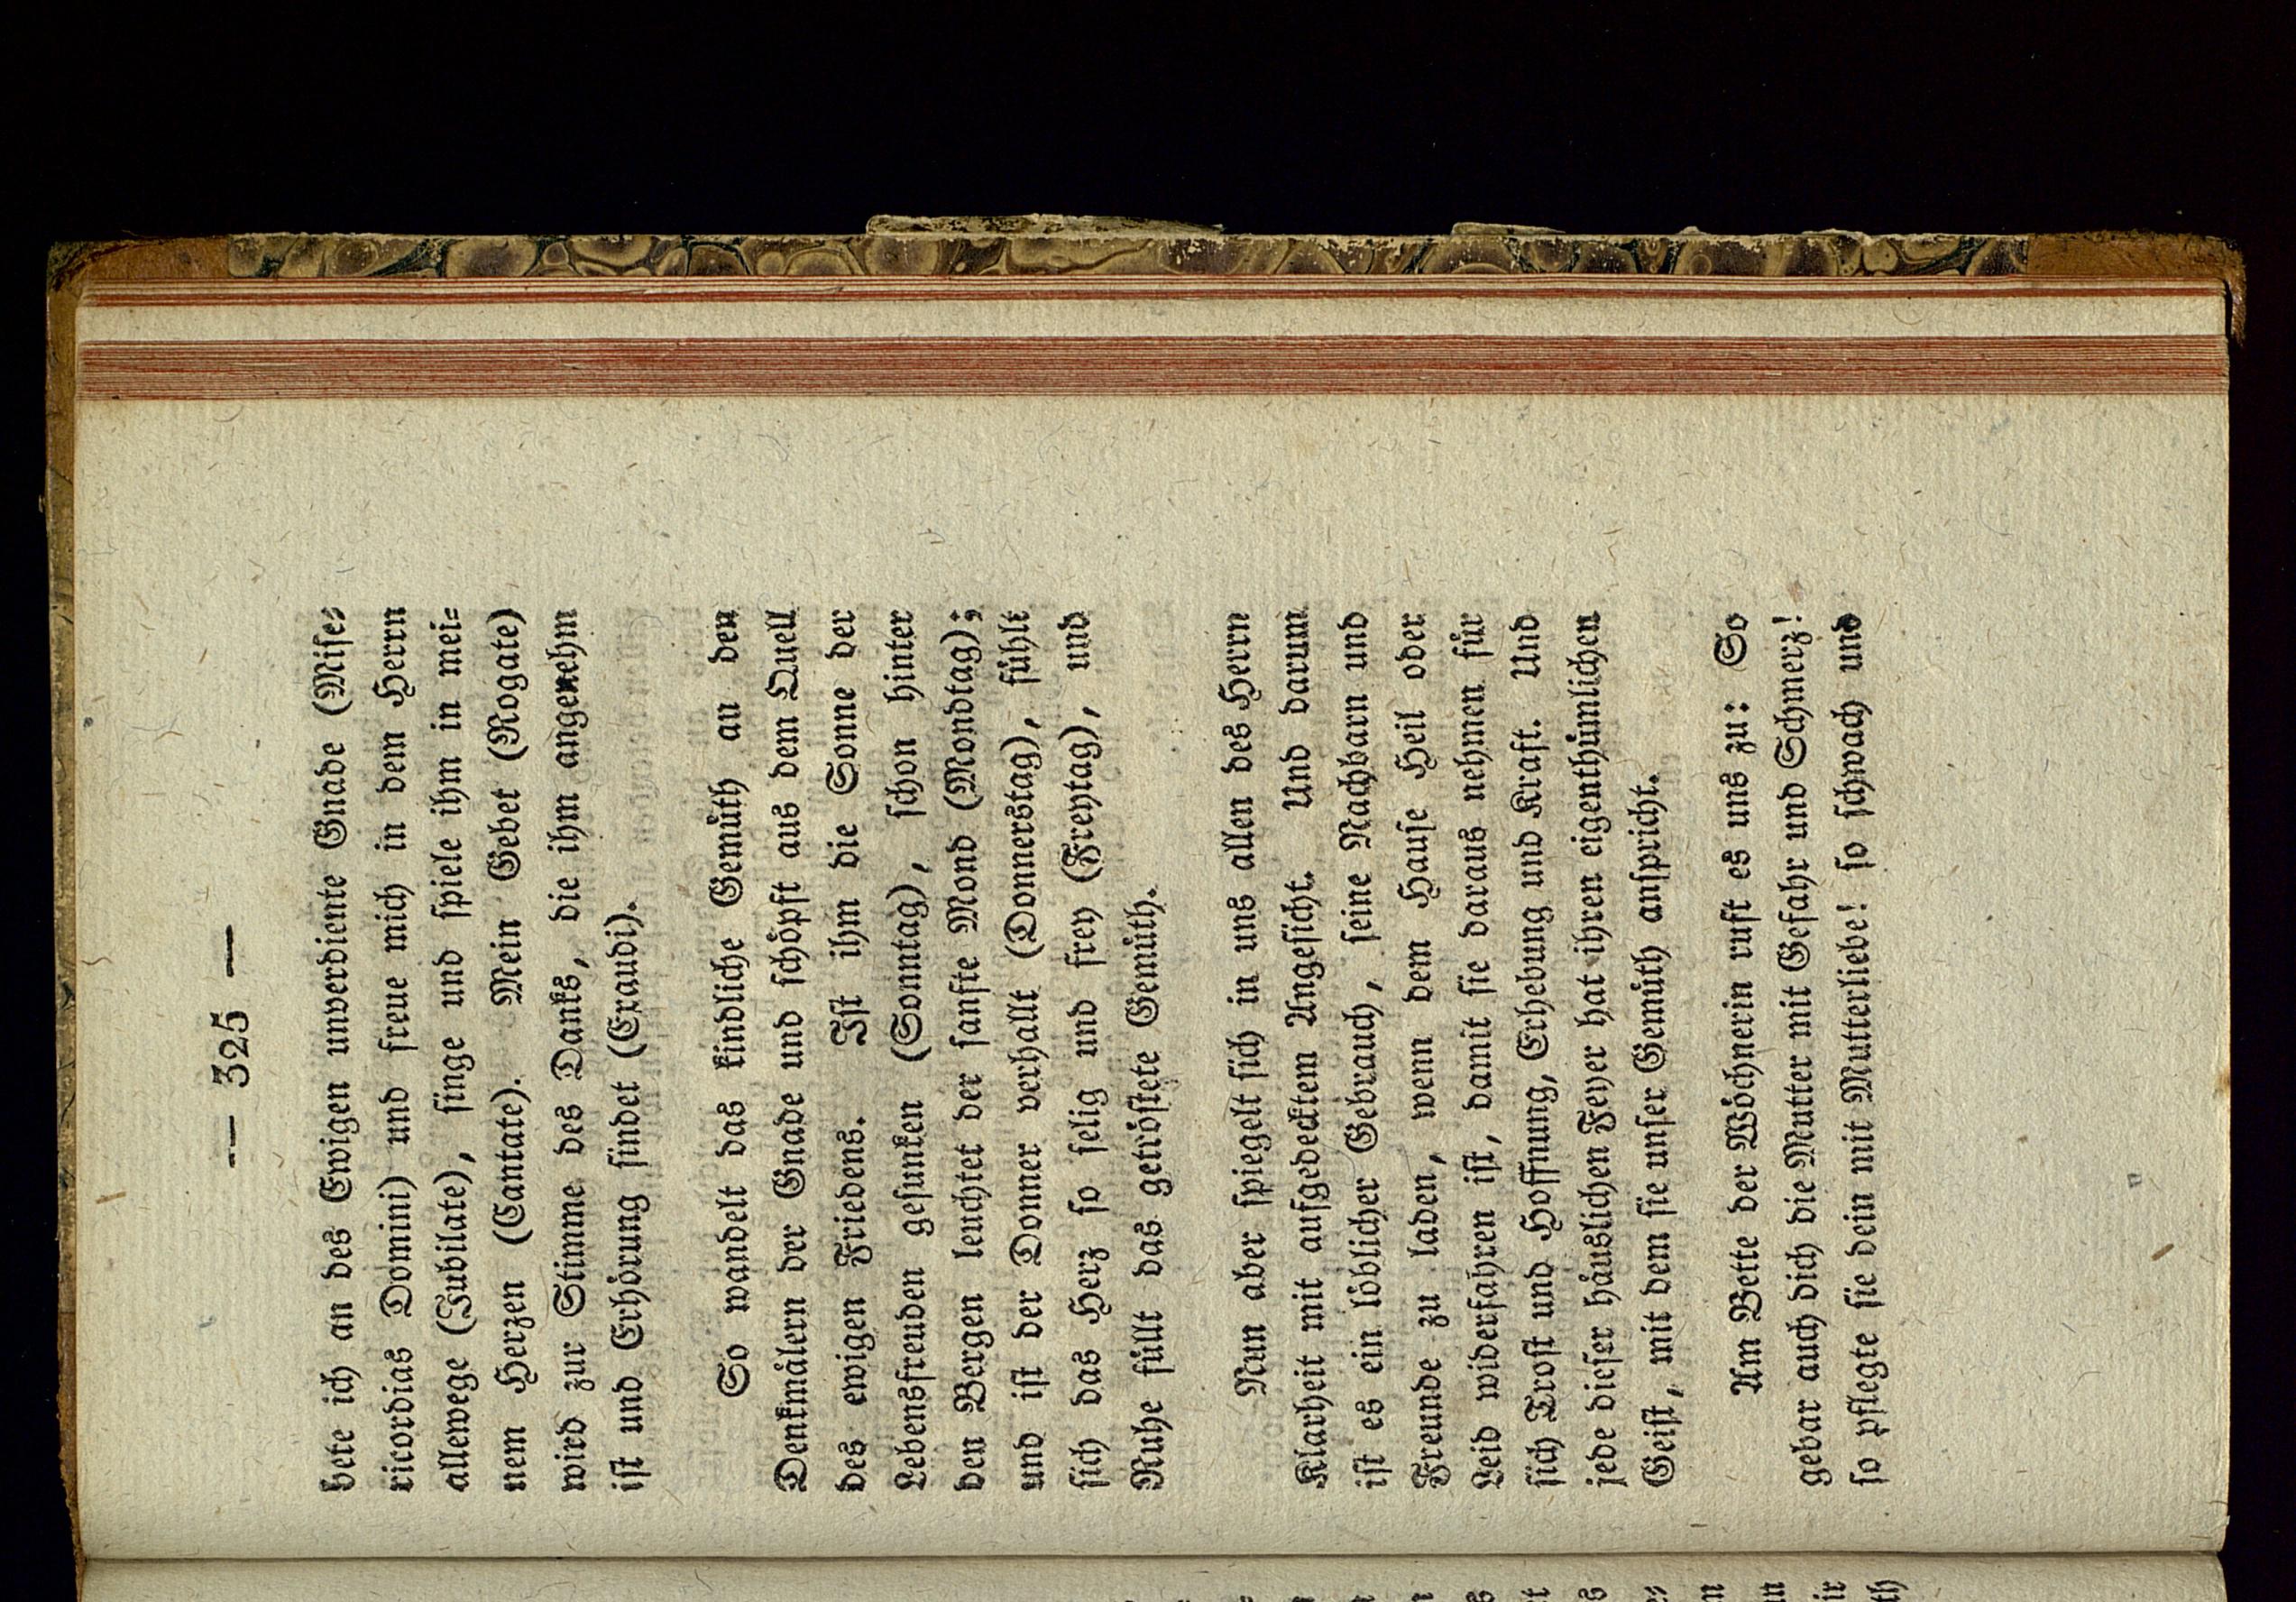 — 325 —
bete ich an des Ewigen unverdiente Gnade (Mise-
ricordias Domini) und freue mich in dem Herrn
allewege (Jubilate), singe und spiele ihm in mei-
nem Herzen (Cantate). Mein Gebet (Rogate)
wird zur Stimme des Danks, die ihm angenehm
ist und Erhörung findet (Exaudi).
So wandelt das kindliche Gemüth an den
Denkmälern der Gnade und schöpft aus dem Quell
des ewigen Friedens. Ist ihm die Sonne der
Lebensfreuden gesunken (Sonntag), schon hinter
den Bergen leuchtet der sanfte Mond (Mondtag);
und ist der Donner verhallt (Donnerstag), fühlt
sich das Herz so selig und frey (Freytag), und
Ruhe füllt das getröstete Gemüth.
Nun aber spiegelt sich in uns allen des Herrn
Klarheit mit aufgedecktem Angesicht. Und darum
ist es ein löblicher Gebrauch, seine Nachbarn und
Freunde zu laden, wenn dem Hause Heil oder
Leid widerfahren ist, damit sie daraus nehmen für
sich Trost und Hoffnung, Erhebung und Kraft. Und
jede dieser häuslichen Feyer hat ihren eigenthümlichen
Geist, mit dem sie unser Gemüth anspricht.
Am Bette der Wöchnerin ruft es uns zu: So
gebar auch dich die Mutter mit Gefahr und Schmerz!
so pflegte sie dein mit Mutterliebe! so schwach und